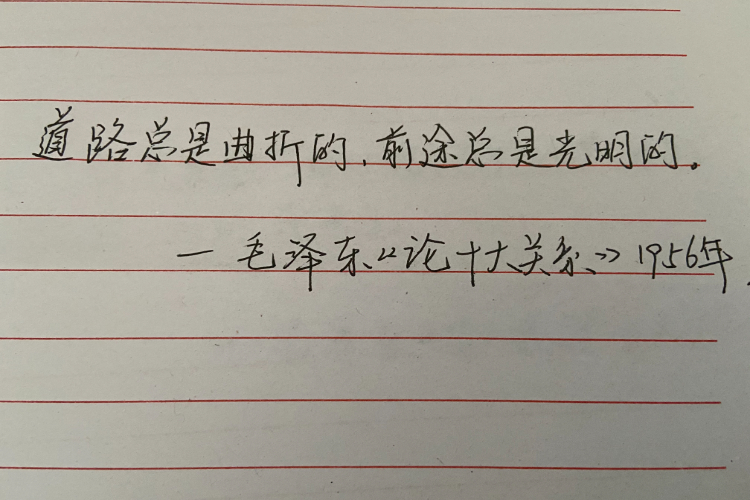 道路总是曲折的,前途总是光明的.
—毛泽东《论十大关系》1956年.